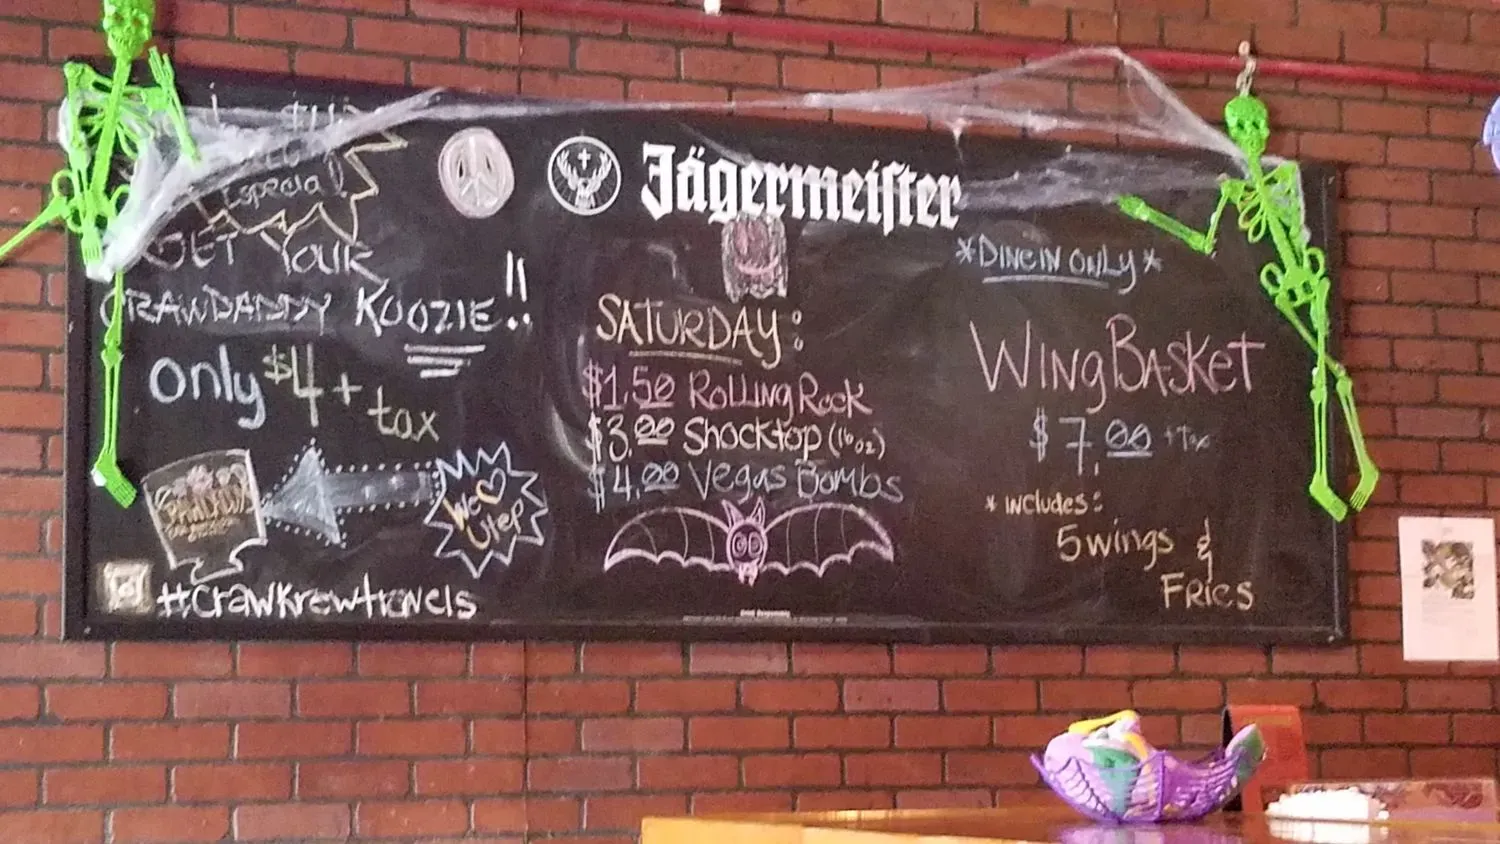 Special
GET YOUR
CRAWDADDY KOOZIE!!
only $4 + tax
We ♡
Utep
#CrawKrewtravels
Jägermeister
SATURDAY:
$1.50 Rolling Rock
$3.00 Shocktop (16oz)
$4.00 Vegas Bombs
*DINE IN ONLY*
Wing Basket
$7.00 + Tax
* Includes:
5 wings &
Fries